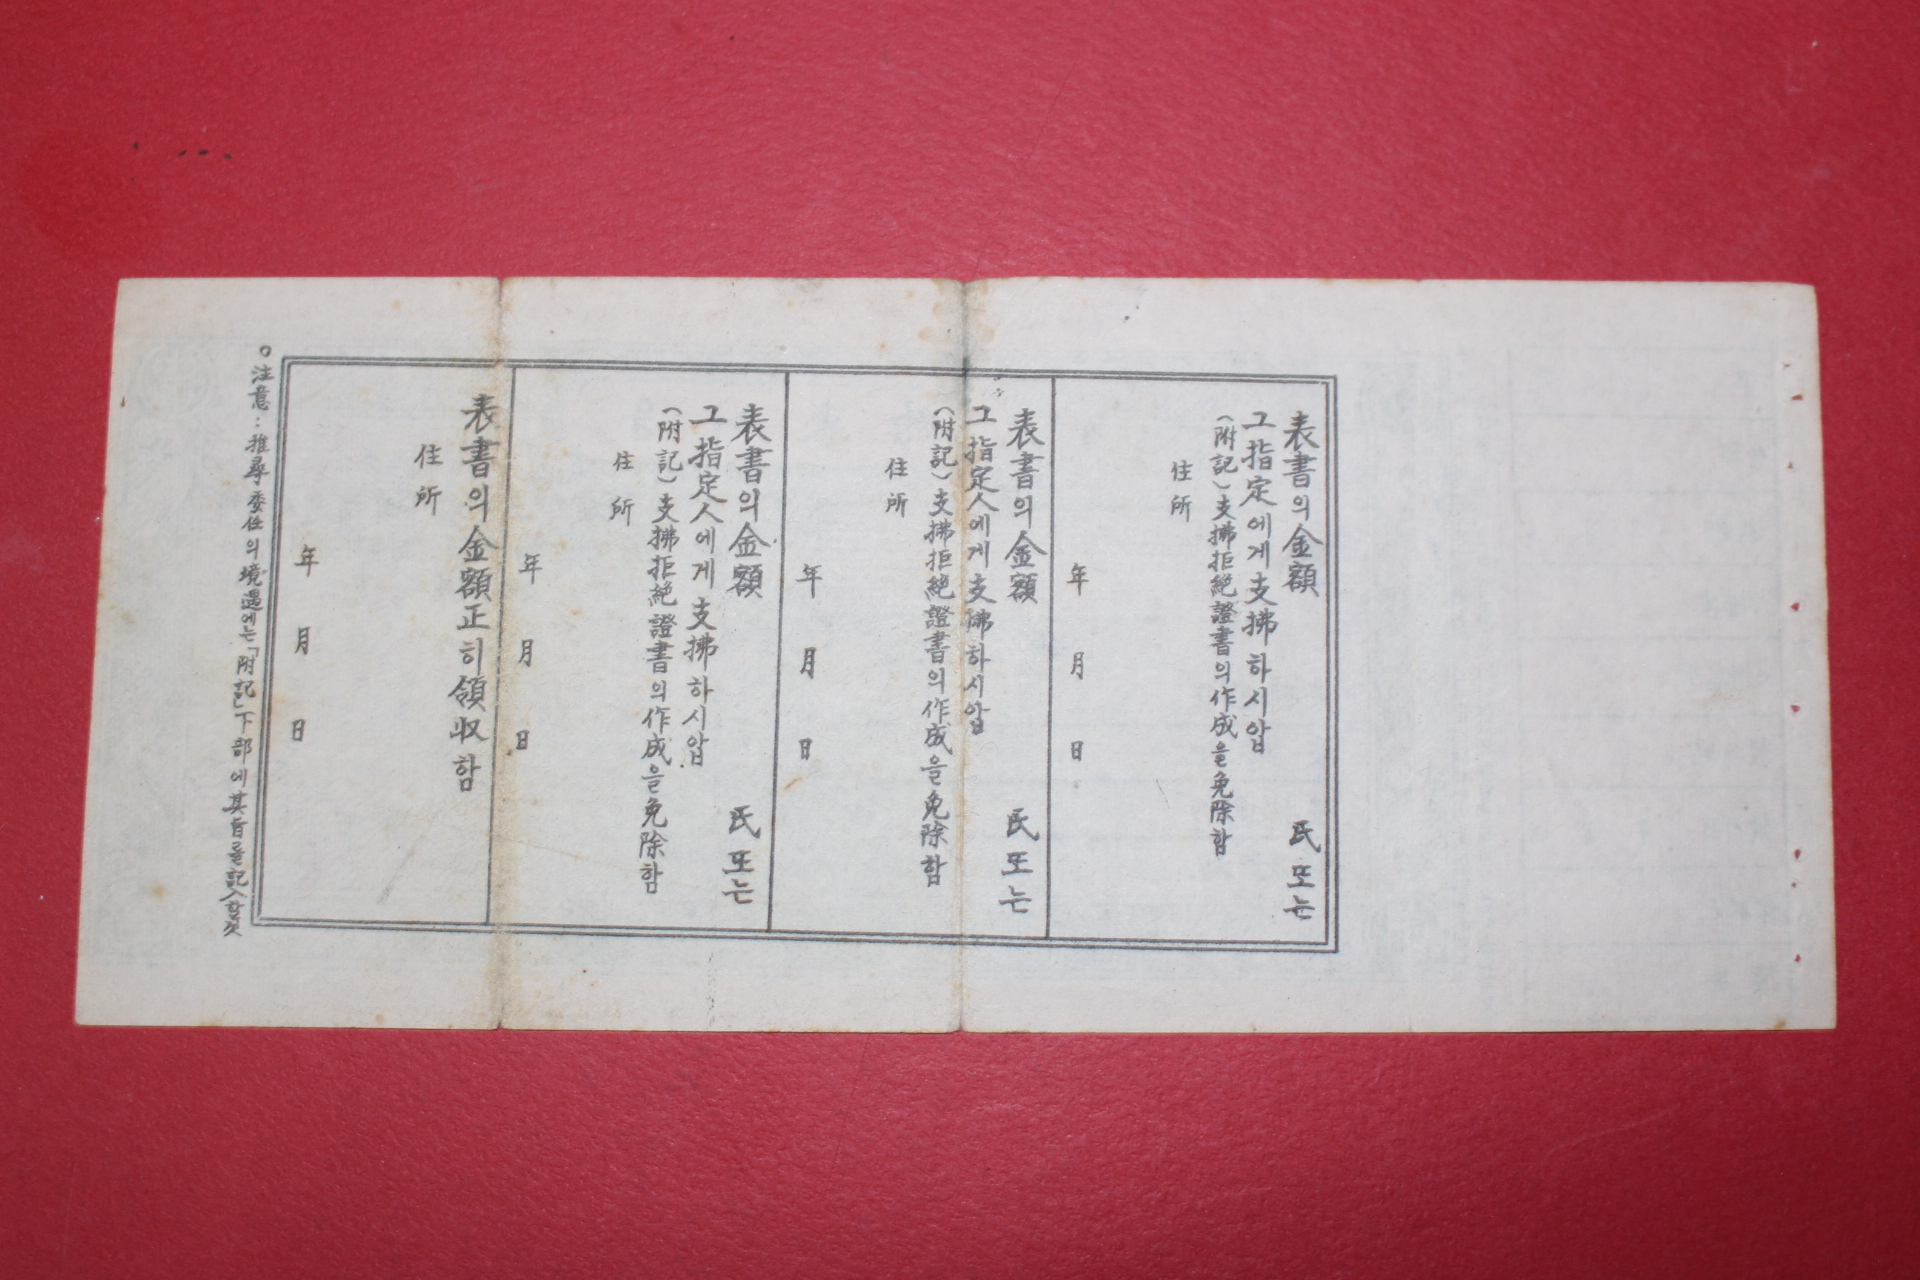 表書의金額 氏또는
그指定에게支拂하시압
(附記)支拂拒絶證書의作成을免除함
住所
年 月 日
表書의金額 氏또는
그指定人에게支拂하시압
(附記)支拂拒絶證書의作成을免除함
住所
年 月 日
表書의金額 氏또는
그指定人에게支拂하시압
(附記)支拂拒絶證書의作成을免除함
住所
年 月 日
表書의金額正히領収함
住所
年 月 日
○注意:推尋委任의境遇에는「附記」下部에其旨를記入할것